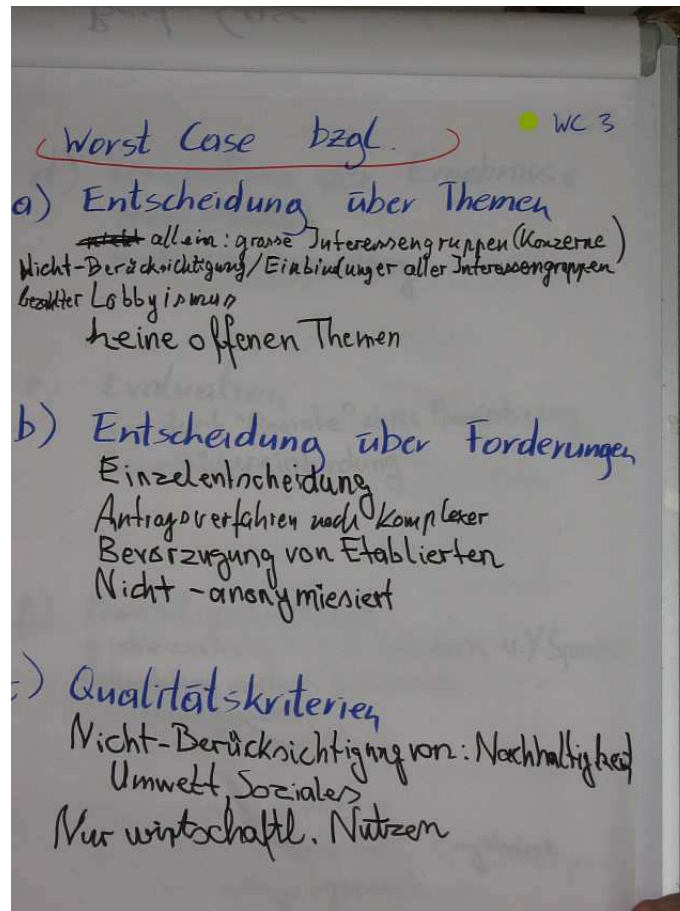 Worst Case bzgl.
WC 3
a) Entscheidung über Themen
allein: grosse Interessengruppen (Konzerne)
Nicht-Berücksichtigung/Einbindunger aller Interessengruppen
bezahlter Lobbyismus
keine offenen Themen
b) Entscheidung über Forderungen
Einzelentscheidung
Antragsverfahren noch Komplexer
Bevorzugung von Etablierten
Nicht-anonymiesiert
c) Qualitätskriterien
Nicht-Berücksichtigung von: Nachhaltigkeit
Umwelt, Soziales
Nur wirtschaftl. Nutzen